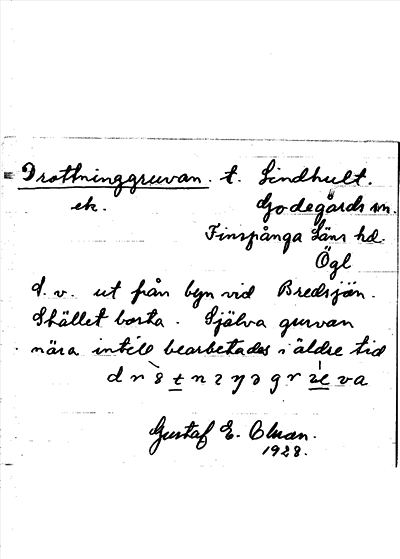 Drottninggruvan. t. Lindhult.
ek. Godegårds sn.
Finspånga Läns hd.
Ögl
S. v. ut från byn vid Bredsjön.
Stället borta. Själva gruvan
nära intill bearbetades i äldre tid
Gustaf E. Olman.
1928.